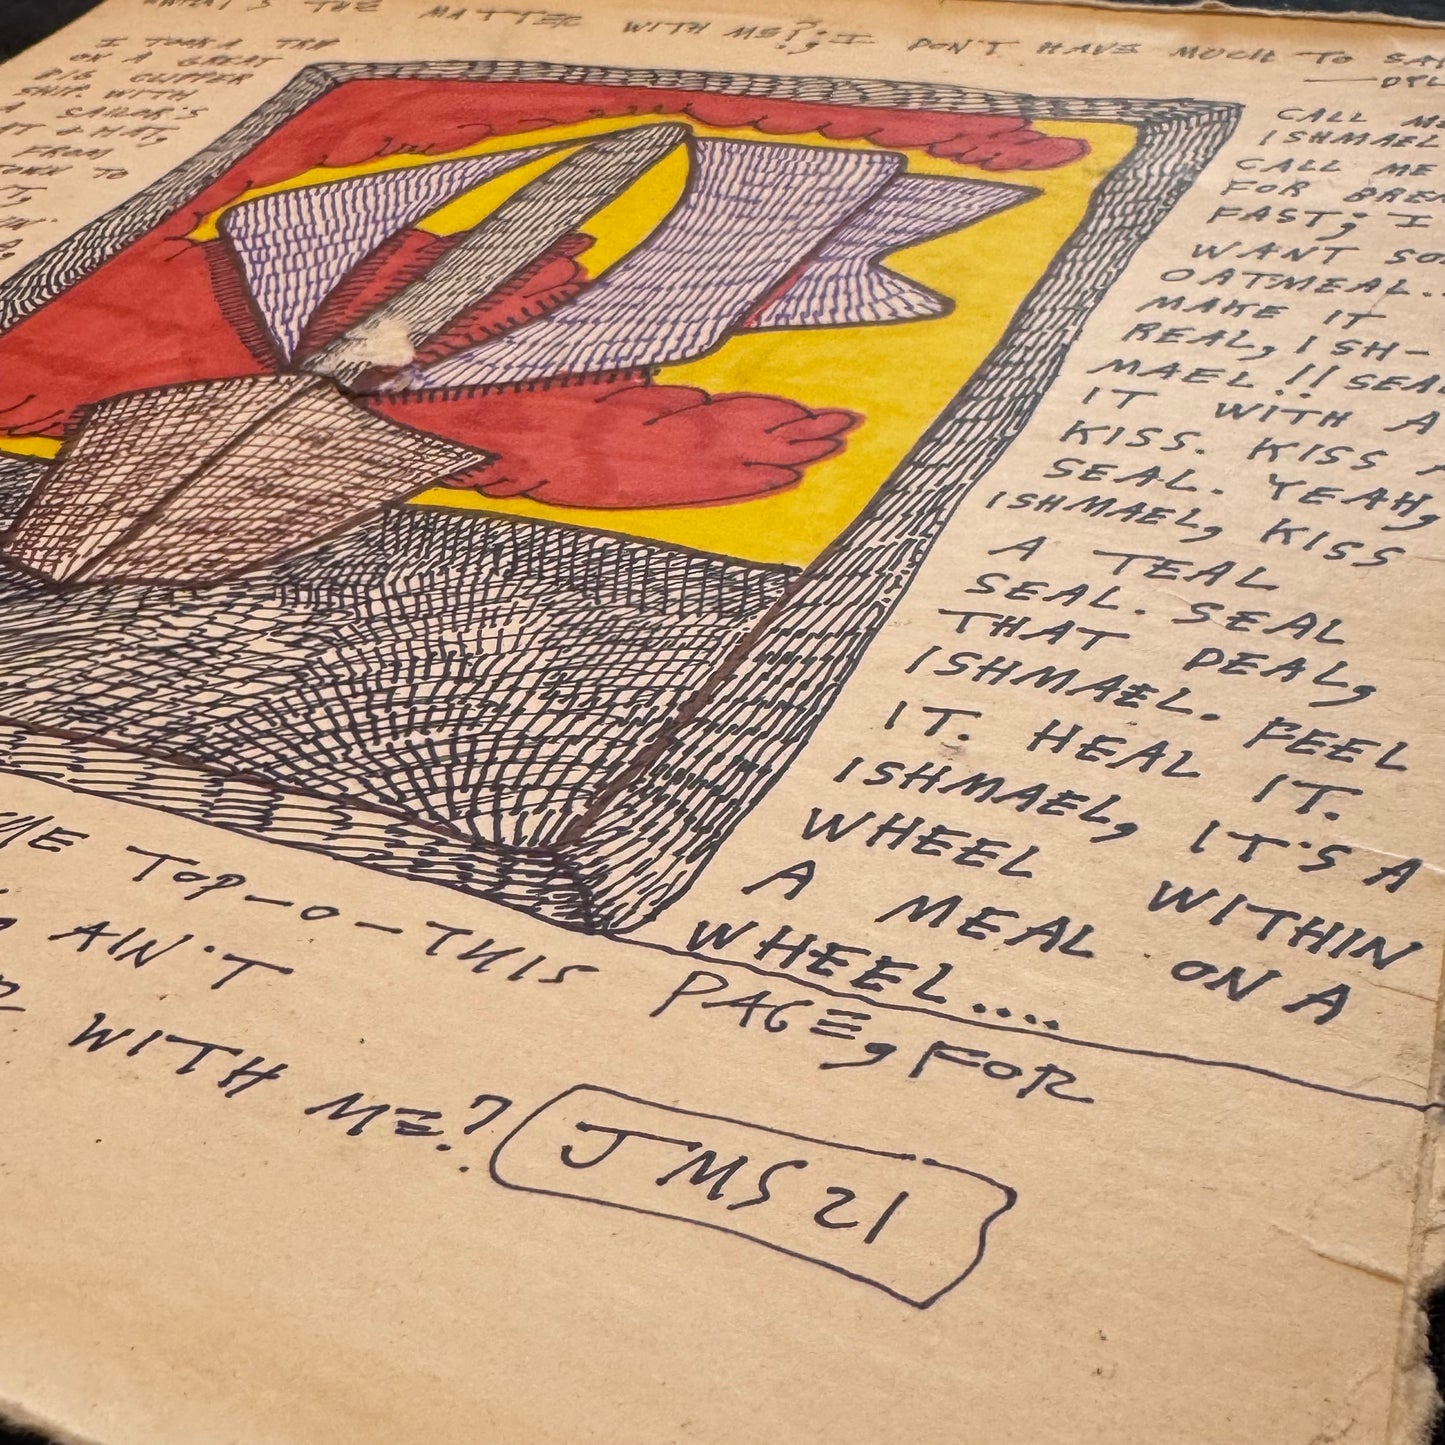 WHAT'S THE MATTER WITH ME?; I DON'T HAVE MUCH TO SAY
I TOOK A TRIP
ON A GREAT
BIG CLIPPER
SHIP WITH
A SAILOR'S
AT & HAT,
FROM
TO
CALL ME
ISHMAEL
CALL ME
FOR BREA
FAST; I
WANT SO
OATMEAL.
MAKE IT
REAL, ISH-
MAEL!! SEAL
IT WITH A
KISS. KISS A
SEAL. YEAH,
ISHMAEL, KISS
A TEAL
SEAL. SEAL
THAT DEAL,
ISHMAEL. PEEL
IT. HEAL IT.
ISHMAEL, IT'S A
WHEEL WITHIN
A MEAL ON A
WHEEL....
ME TOP-O-THIS PAGE, FOR
AIN'T
WITH ME?
JMS 21